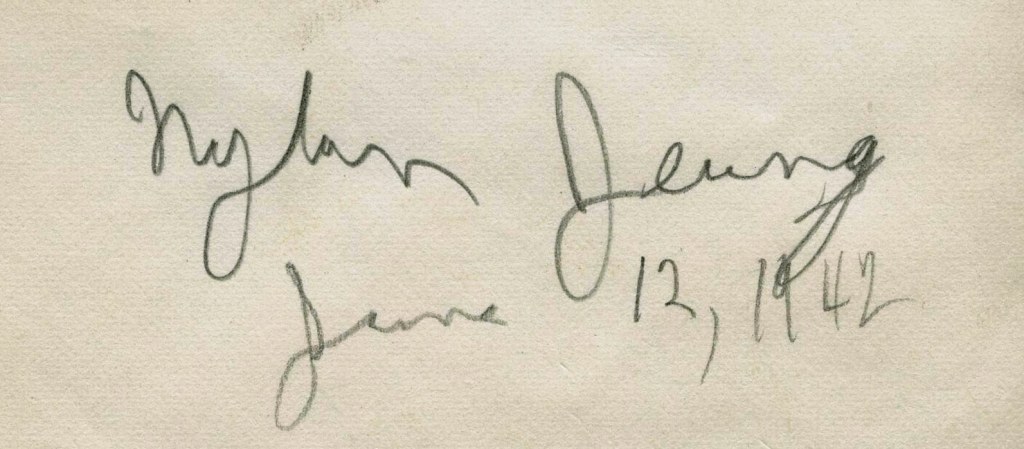 Nylan Jeung
June 12, 1942